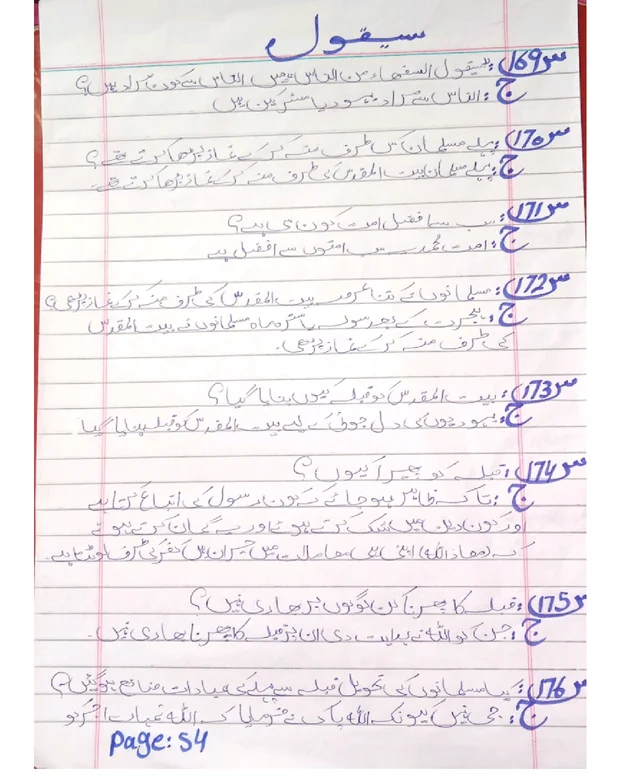 سیقول
س169): سیقول السفھاء من الناس میں الناس سے کون مراد ہیں؟
ج: الناس سے مراد یہود یا مشرکین ہیں
س170): پہلے مسلمان کس طرف منہ کر کے نماز پڑھا کرتے تھے؟
ج: پہلے مسلمان بیت المقدس کی طرف منہ کر کے نماز پڑھا کرتے تھے۔
س171): سب سے افضل امت کون سی ہے؟
ج: امت محمدیہ سب امتوں سے افضل ہے
س172): مسلمانوں نے کتنا عرصہ بیت المقدس کی طرف منہ کر کے نماز پڑھی؟
ج: ہجرت کے بعد سولہ یا سترہ ماہ مسلمانوں نے بیت المقدس
کی طرف منہ کر کے نماز پڑھی۔
س173): بیت المقدس کو قبلہ کیوں بنایا گیا؟
ج: یہودیوں کی دل جوئی کے لیے بیت المقدس کو قبلہ بنایا گیا
س174): قبلہ کو پھیرا کیوں؟
ج: تاکہ ظاہر ہو جائے کہ کون رسول کی اتباع کرتا ہے
اور کون دین میں شک کرتے ہوئے اور یہ گمان کرتے ہوئے
کہ (معاذ اللہ) نبی ﷺ معاملات میں حیران ہیں کفر کی طرف لوٹتا ہے۔
س175): قبلہ کا پھرنا کن لوگوں پر بھاری نہیں؟
ج: جن کو اللہ نے ہدایت دی ان پر قبلہ کا پھرنا بھاری نہیں۔
س176): کیا مسلمانوں کی تحویل قبلہ سے پہلے کی عبادات ضائع ہو گئیں؟
ج: جی نہیں کیونکہ اللہ پاک نے فرمایا کہ اللہ تمہارے اجر کو
Page: 54